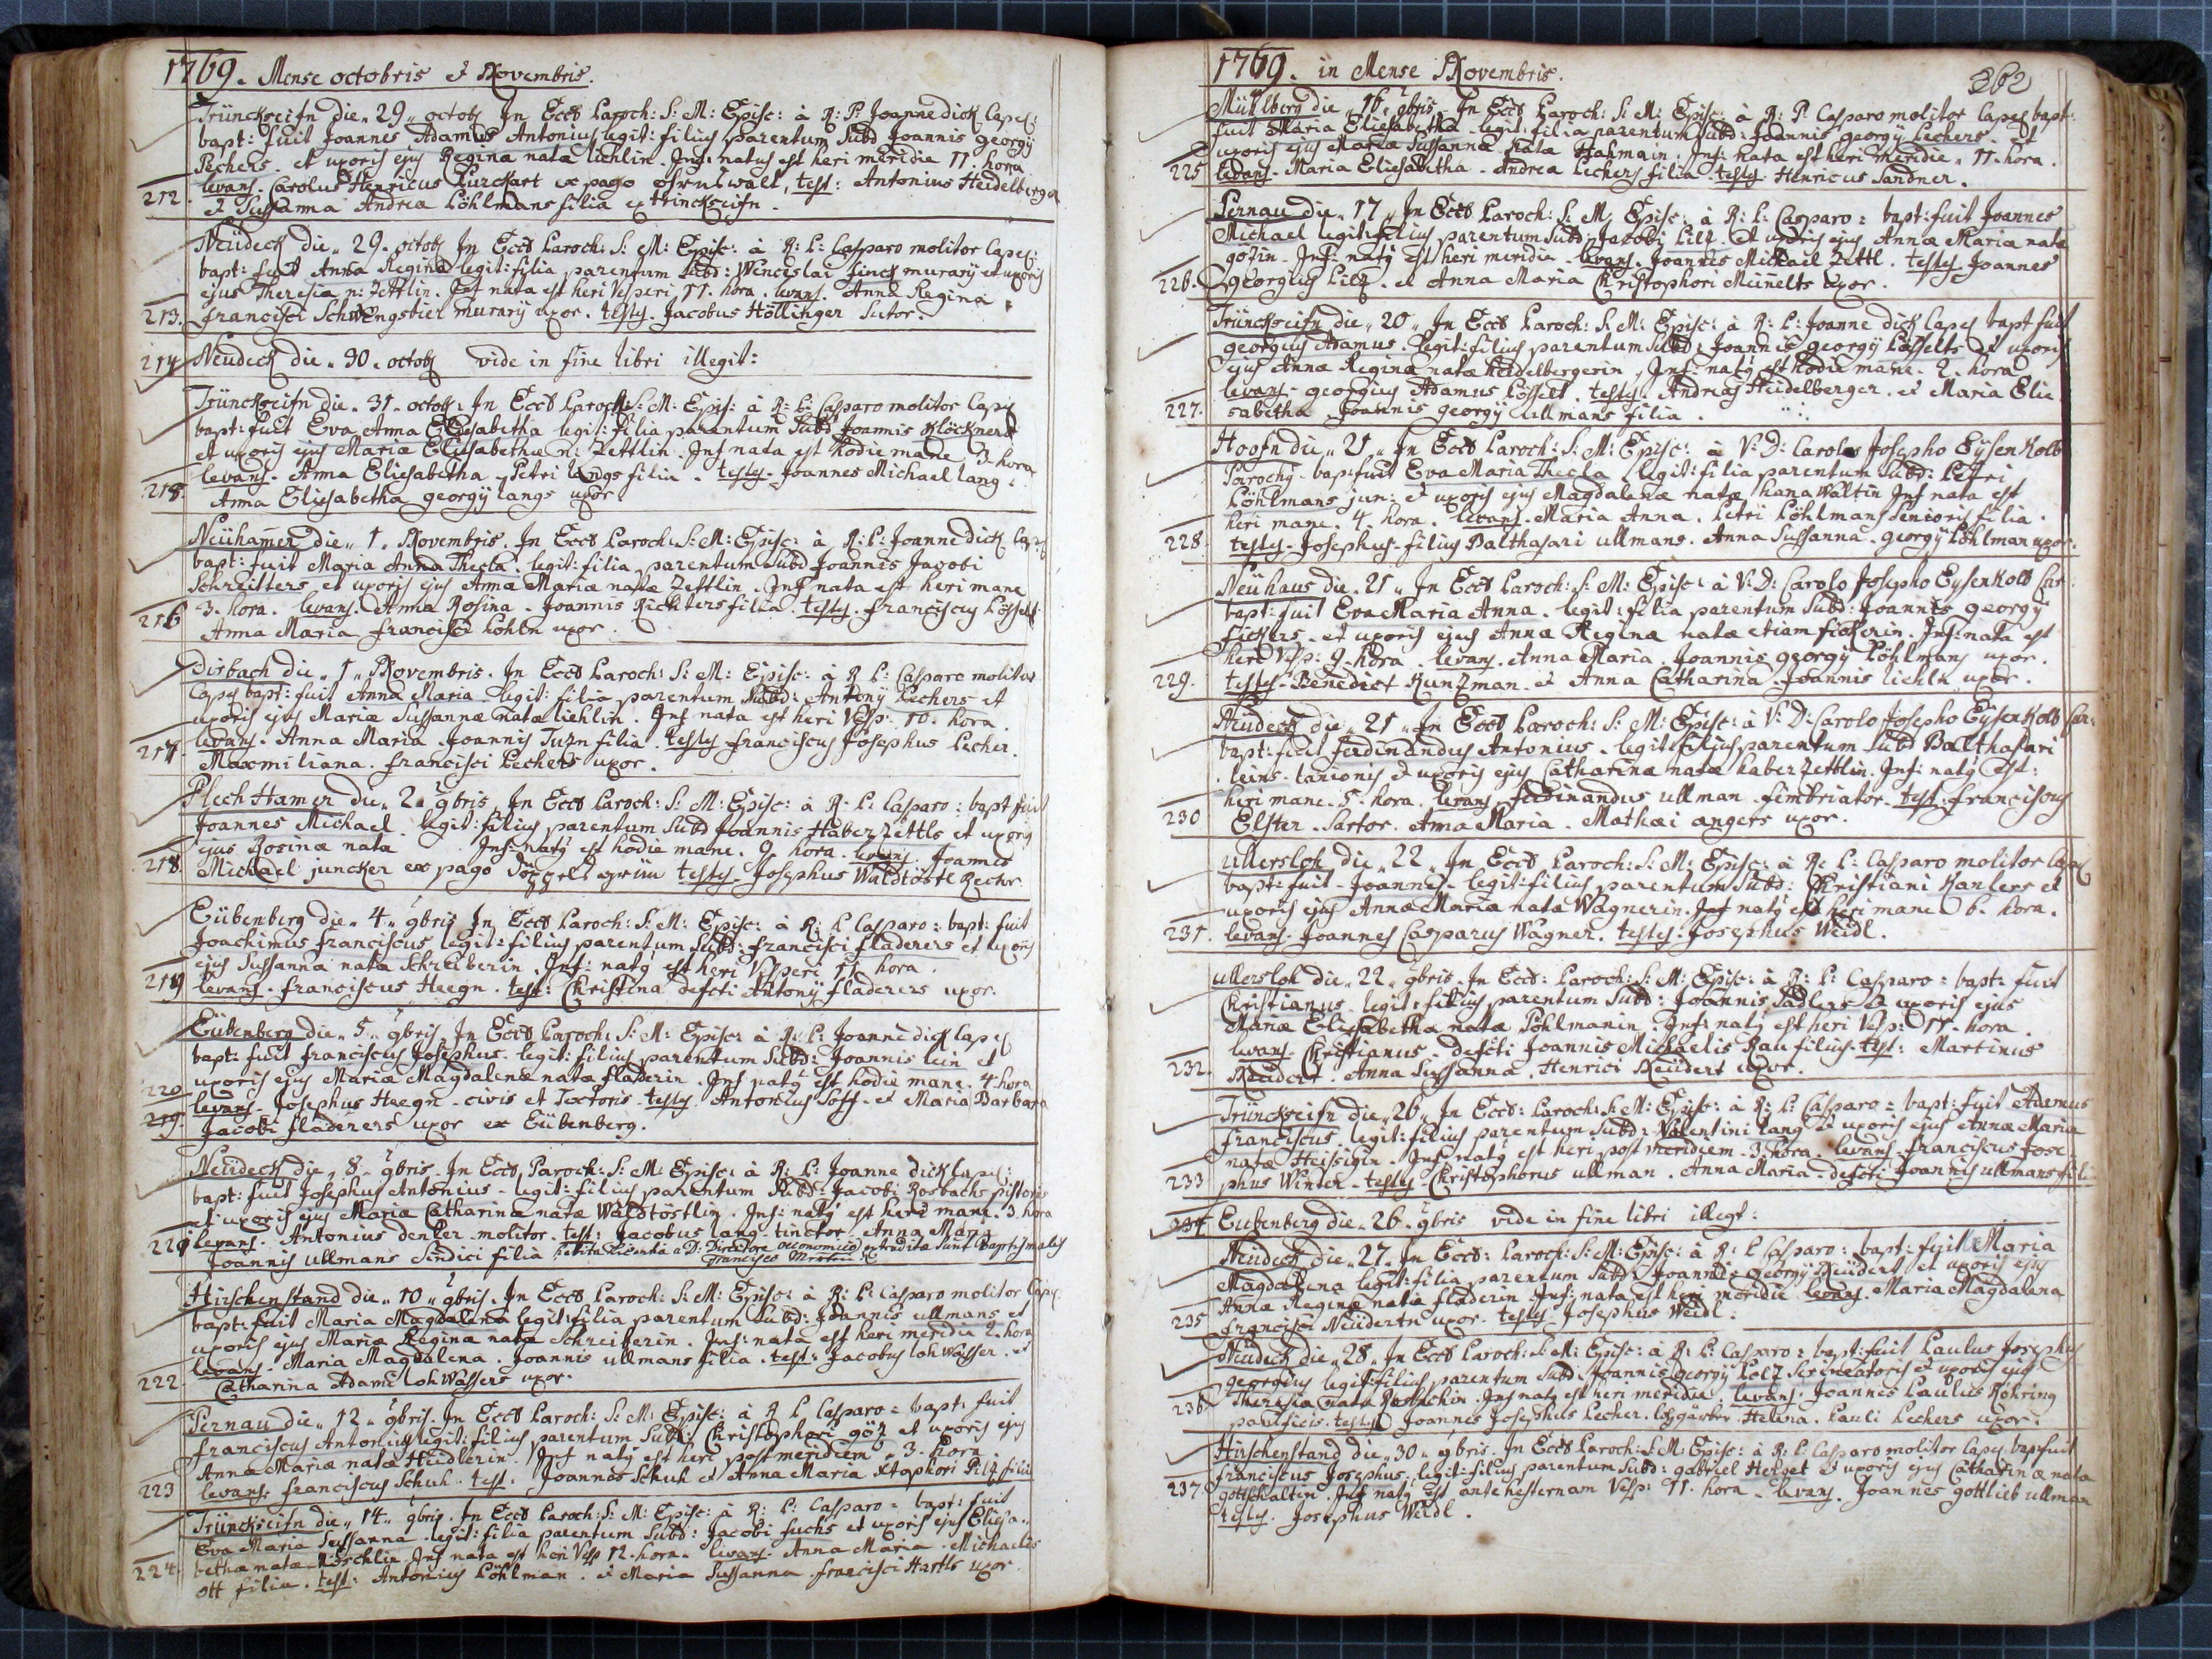 1769. Mense octobris et Novembris.
Trünckseifn die 29 octob In Eccl Paroch: S: M: Episc: à R: P: Joanne dick Capel:
bapt: fuit Joannes Adamus Antonius legit: filius parentum Subd Joannis georgÿ
Pechers et uxoris ejus Regina nata liehlin. Inf: natus est heri meridie 11. hora
212. levans. Carolus Henricus ex pago test: Antonius Heidelberger
et Sussanna Andrea Pöhlmans filia ex trinckseifn.
Neudeck die 29. octob In Eccl Paroch: S: M: Episc: à R: P: Casparo molitor Capel:
bapt: fuit Anna Regina legit: filia parentum Subd: Wencislai murarÿ et uxoris
ejus Theresia n: Zettlin. Inf nata est heri Vesperi 11. hora. levans. Anna Regina
213. francisci Schwengsbier murarÿ uxor. testes. Jacobus Höllinger Sutor.
214 Neudeck die 30. octob vide in fine libri illegit:
Trünckseifn die 31. octob: In Eccl Paroch: S: M: Epis: à R: P: Casparo molitor Capel
bapt: fuit Eva Anna Eliesabetha legit: filia parentum Subd Joannis Klöckners
et uxoris ejus Maria Eliesabethæ n: Zettlin. Inf nata est hodie mane 3. hora
215. levans. Anna Eliesabetha Petri langs filia. testes. Joannes Michael lang.
Anna Eliesabetha georgÿ langs uxor
Neühamer die 1. Novembris. In Eccl Paroch: S: M: Episc: à R: P: Joanne dick Capel
bapt: fuit Maria Anna Thecla. legit: filia parentum Subd Joannis Jacobi
Schreitters et uxoris ejus Anna Mariæ natæ Zettlin. Inf nata est heri mane
216 3. hora. levans. Anna Rosina. Joannis Richters filia. testes. franciscus Pösselt
Anna Maria francisci uxor.
Dirbach die 1 Novembris. In Eccl Paroch: S: M: Episc: à R P: Casparo molitor
Capel bapt: fuit Anna Maria legit: filia parentum Subd: Antonÿ Pechers et
uxoris ejus Mariæ Sussannæ natæ liehlin. Inf nata est heri Vesp: 10. hora
217 levans. Anna Maria Joannis filia. testes franciscus Josephus Pecher.
Maxmiliana. francisci Pechers uxor.
Plech Hamer die 2 9bris In Eccl Paroch: S: M: Episc: à R: P: Casparo: bapt fuit
Joannes Michael. legit: filius parentum Subd Joannis Haberzettls et uxoris
ejus Rosinæ nata Inf: natus est hodie mane. 9 hora. levans. Joannes
218. Michael juncker ex pago testes. Josephus Waldtöstl Rector
Eübenberg die 4 9bris In Eccl Paroch: S: M: Episc: à R: P Casparo: bapt: fuit
Joachimus franciscus legit: filius parentum Subd: francisci fladerers et uxoris
ejus Sussanna nata Schreiberin. Inf: natus est heri Vesperi 11 hora.
219 levans. franciscus Heegn. test: Christina defcti Antonÿ fladerers uxor.
Eübenberg die 5 9bris In Eccl Paroch: S: M: Episc: à R: P: Joanne dick Capel
bapt: fuit franciscus Josephus. legit: filius parentum Subd: Joannis lein et
220 uxoris ejus Mariæ Magdalenæ natæ fladerin. Inf natus est hodie mane. 4 hora
219. levans. Josephus Heegn civis et Textoris testes Antonius Soss. et Maria Barbara
Jacobi fladerers uxor ex Eübenberg.
Neüdeck die 8 9bris In Eccl Paroch: S: M: Episc: à R: P: Joanne dick Capel:
bapt: fuit Josephus Antonius legit: filius parentum Subd: Jacobi Rosbachs pistoris
et uxoris ejus Mariæ Catharinæ natæ Waldtöstlin. Inf: natus est heri mane. 3. hora
levans. Antonius denler molitor. test: Jacobus lang tinctor Anna Maria
Joannis ullmans Sindici filia petita licentia a D: Directore oeconomico extradita sunt baptismales
Francisco
Hirschenstand die 10 9bris. In Eccl Paroch: S: M: Episc: à R: P: Casparo molitor Capel
bapt: fuit Maria Magdalena legit: filia parentum Subd: Joannis ullmans et
uxoris ejus Mariæ Regina nata Schreiberin. Inf: nata est heri meridie 2. hora
levans. Maria Magdalena. Joannis ullmans filia. test: Jacobus lohWasser. et
222 Catharina Adami lohWassers uxor.
Pernau die 12 9bris. In Eccl Paroch: S: M: Episc: à R P Casparo: bapt: fuit
franciscus Antonius legit: filius parentum Subd: Christophori göz et uxoris ejus
Anna Mariæ natæ Heidlerin. Inf natus est heri post meridiem 3. hora.
223 levans. franciscus Schuh. test. Joannes Schuh et Anna Maria Xtophori Pilz filia
Trünckseifn die 14 9bris. In Eccl Paroch: S: M: Episc: à R: P: Casparo: bapt: fuit
Eva Maria Sussanna legit: filia parentum Subd: Jacobi fuchs et uxoris ejus Eliesa-
224. betha natæ Inf nata est heri Vesp 12. hora. levans. Anna Maria. Michaelis
ott filia. test: Antonius Pöhlman. et Maria Sussanna francisci Hartls uxor
1769. in Mense Novembris. 362
Mühlberg die 16 9bris In Eccl Paroch: S: M: Episc: à R: P. Casparo molitor Capel bapt:
fuit Maria Eliesabetha legit: filia parentum Subd: Joannis georgÿ Pechers et
uxoris ejus Mariæ Sussannæ natæ Inf: nata est heri meridie 11. hora.
225 levans. Maria Eliesabetha. Andrea Pechers filia testes. Henricus Sandner.
Pernau die 17 In Eccl Paroch: S: M: Episc: à R: P: Casparo: bapt: fuit Joannes
Michael legit: filius parentum Subd: Jacobi Pilz. et uxoris ejus Annæ Mariæ natæ
gözin. Inf: natus est heri meridie. levans. Joannes Michael Zettl. testes Joannes
226. georgius Pilz. et Anna Maria Christophori uxor.
Trünckseifn die 20 In Eccl Paroch: S: M: Episc: à R: P: Joanne dick Capel bapt fuit
georgius Adamus. legit: filius parentum Subd: Joannis georgÿ Pösselts et uxoris
ejus Annæ Reginæ natæ heidelbergerin. Inf: natus est hodie mane. 2. hora
levans. georgius Adamus Pösselt. testes. Andreas Heidelberger. et Maria Elie
227. sabetha Joannis georgÿ ullmans filia.
die In Eccl Paroch: S: M: Episc: à V: D: Carolo Josepho Eÿsenkolb
Parochÿ. bapt: fuit Eva Maria Thecla legit: filia parentum Subd: Petri
Pöhlmans jun: et uxoris ejus Magdalenæ natæ hanaWaltin Inf nata est
heri mane. 4. hora. levans. Maria Anna. Petri Pöhlmans Senioris filia.
228 testes. Josephus filius Balthasari ullmans. Anna Sussanna. georgÿ Pöhlman uxor.
Neühaus die 21 In Eccl Paroch: S: M: Episc: à V: D: Carolo Josepho Eysenkolb Par:
bapt: fuit Eva Maria Anna. legit: filia parentum Subd: Joannis georgÿ
fickers. et uxoris ejus Annæ Reginæ natæ etiam fickerin. Inf: nata est
heri Vesp: 9. hora. levans. Anna Maria. Joannis georgÿ Pöhlmans uxor.
229. testes. Benedict Kunzman et Anna Catharina Joannis liehln uxor.
Neudeck die 21 In Eccl Paroch: S: M: Episc: à V: D: Carolo Josepho Eÿsenkolb Par:
bapt: fuit ferdinandus Antonius. legit: filius parentum Subd Balthasari
leins lanionis et uxoris ejus Catharinæ natæ haberzettlin. Inf: natus est:
heri mane. 5. hora. levans ferdinandus ullman fimbriator. test: franciscus
230 Elster. Sartor. Anna Maria. Mathæi angers uxor.
ullersloh die 22 In Eccl Paroch: S: M: Episc: à R: P: Casparo molitor Capel
bapt: fuit Joannes. legit: filius parentum Subd: Christiani Kanlers et
uxoris ejus Annæ Mariæ natæ Wagnerin. Inf natus est heri mane 6. hora.
231. levans. Joannes Casparus Wagner. testes: Josephus Weidl.
ullersloh die 22 9bris. In Eccl: Paroch: S: M: Episc: à R: P: Casparo: bapt: fuit
Christianus legit: filius parentum Subd: Joannis Sadlers et uxoris ejus
Annæ Eliesabetha natæ Pöhlmanin. Inf: natus est heri Vesp: 11. hora.
levans. Christianus. defcti Joannis Michaelis Rau filius. test: Martinus
232. Neudert. Anna Sussanna. Henrici Neüdert uxor.
Trünckseifn die 26 In Eccl: Paroch: S: M: Episc: à R: P: Casparo: bapt: fuit Adamus
franciscus. legit: filius parentum Subd: Valentini lang et uxoris ejus Annæ Mariæ
natæ Heisigin. Inf natus est heri post meridiem. 3. hora. levans. franciscus Jose
233 phus Winter. testes. Christophorus ullman. Anna Maria defcti Joannis ullmans filia
234 Eubenberg die 26. 9bris vide in fine libri illegt:
Neüdeck die 27. In Eccl: Paroch: S: M: Episc: à R: P Casparo: bapt: fuit Maria
Magdalena legit: filia parentum Subd: Joannis georgÿ Neüdert et uxoris ejus
Annæ Reginæ natæ fladerin Inf: nata est heri meridie levans. Maria Magdalena
235 francisci Neüdertn uxor. testes Josephus Weidl.
Neudeck die 28 In Eccl Paroch: S: M: Episc: à R: P: Casparo: bapt: fuit Paulus Josephus
georgius legit: filius parentum Subd Joannis georgÿ et uxoris ejus
236 Theresia nata Inf natus est heri meridie levans. Joannes Paulus Röhring
panificis. testes Joannes Josephus Pecher. Helena. Pauli Pechers uxor.
Hirschenstand die 30 9bris. In Eccl Paroch: S: M: Episc: à R: P: Casparo molitor Capel. bapt fuit
franciscus Josephus. legit: filius parentum Subd: gabriel Herget et uxoris ejus Catharinæ nata
237. gottschaltin. Inf natus est antehesternam Vesp: 11. hora. levans. Joannes gottlieb ullman
testes. Josephus Weidl.